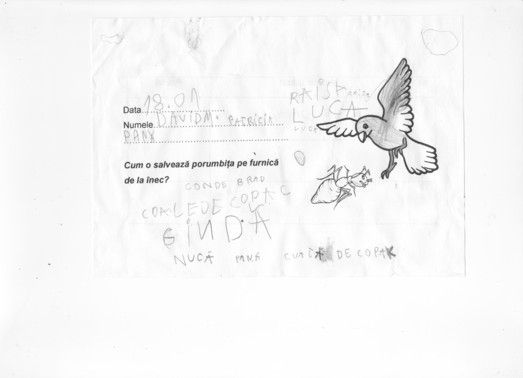 Data 18.01
Numele DAVID M. PATRICIA
RAISA RAISA
LUCA
LUCA
Cum o salvează porumbița pe furnică
de la înec?
CON DE BRAD
COAJE DE COPAC
GINDĂ
NUCĂ PANĂ CUIB DE COPAK